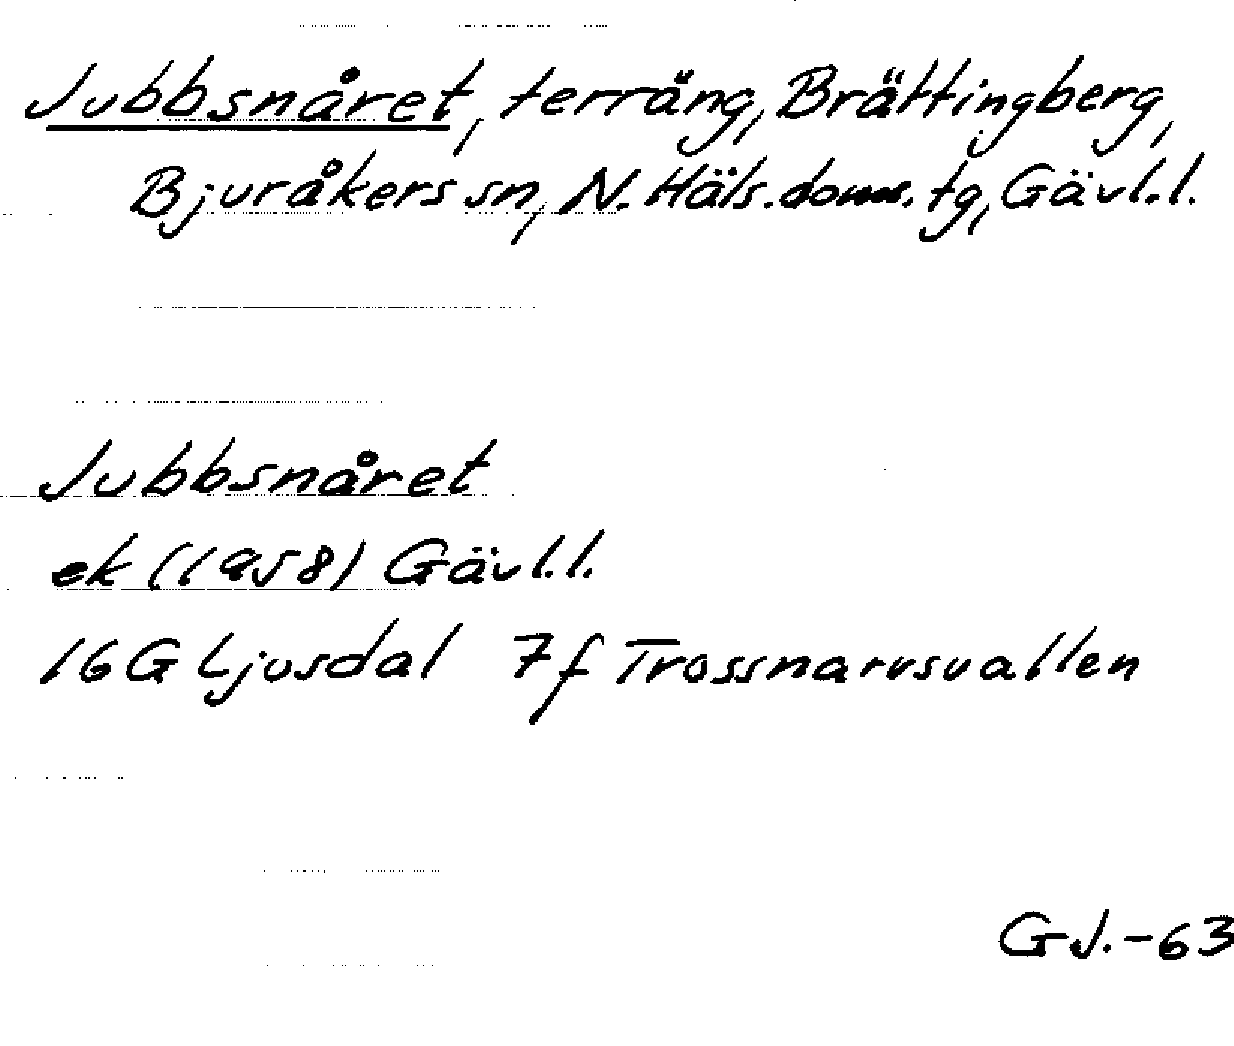 Jubbsnåret, terräng, Brättingberg,
Bjuråkers sn, N. Häls. doms. tg, Gävl.l.
Jubbsnåret
ek (1958) Gävl.l.
16G Ljusdal 7f Trossnarvsvallen
GJ.-63